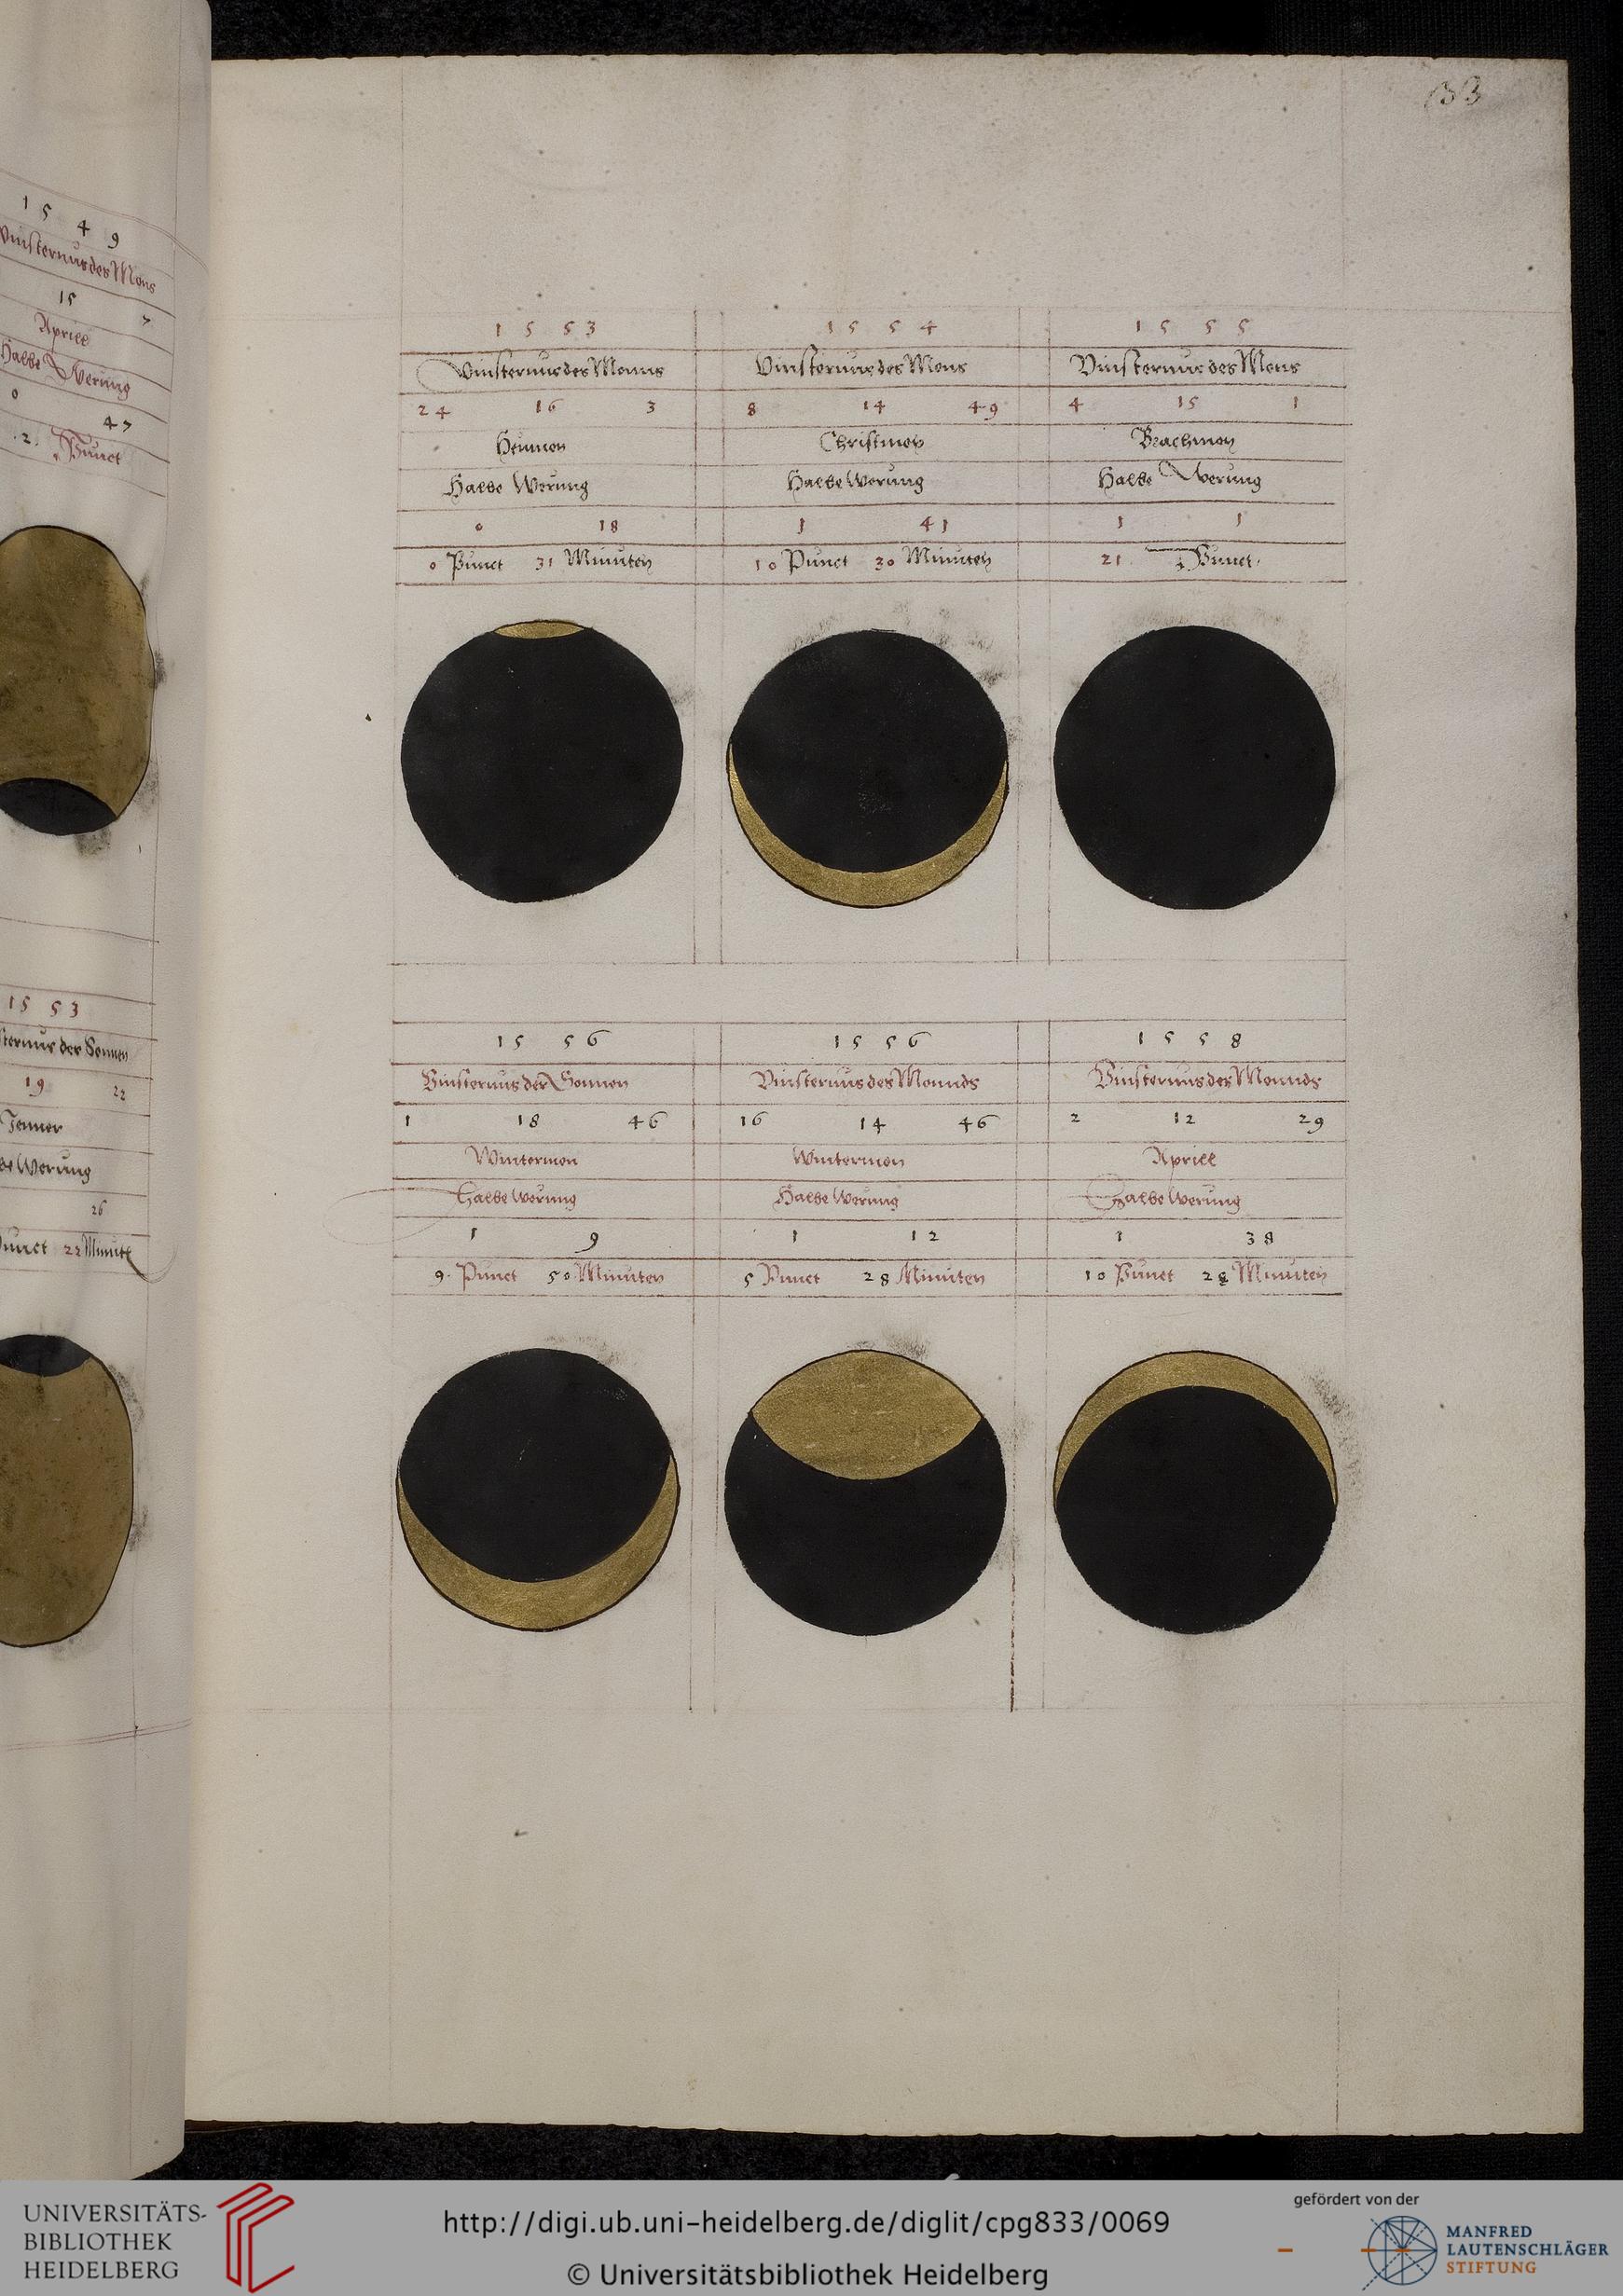 133
1 5 4 9
Vinsternus des Mons
15 7
Aprill
Halbe Werung
0 47
2 Punct
1 5 5 3
Vinsternus des Monns
24 16 3
Heumon
Halbe Werung
0 18
0 Punct 31 Minuten
1 5 5 4
Vinsternus des Mons
8 14 49
Christmon
Halbe Werung
1 41
10 Punct 30 Minuten
1 5 5 5
Vinsternus des Mons
4 15 1
Brachmon
Halbe Werung
1 1
21 Punct
15 53
sternus der Sonnen
19 22
Jenner
be Werung
26
unct 22 Minute
1 5 5 6
Vinsternus der Sonnen
1 18 46
Wintermon
Halbe Werung
1 9
9 Punct 50 Minuten
1 5 5 6
Vinsternus des Monnds
16 14 46
Wintermon
Halbe Werung
1 12
5 Punct 28 Minuten
1 5 5 8
Vinsternus des Monnds
2 12 29
Aprill
Halbe Werung
1 38
10 Punct 28 Minuten
UNIVERSITÄTS-
BIBLIOTHEK
HEIDELBERG
http://digi.ub.uni-heidelberg.de/diglit/cpg833/0069
© Universitätsbibliothek Heidelberg
gefördert von der
MANFRED
LAUTENSCHLÄGER
STIFTUNG